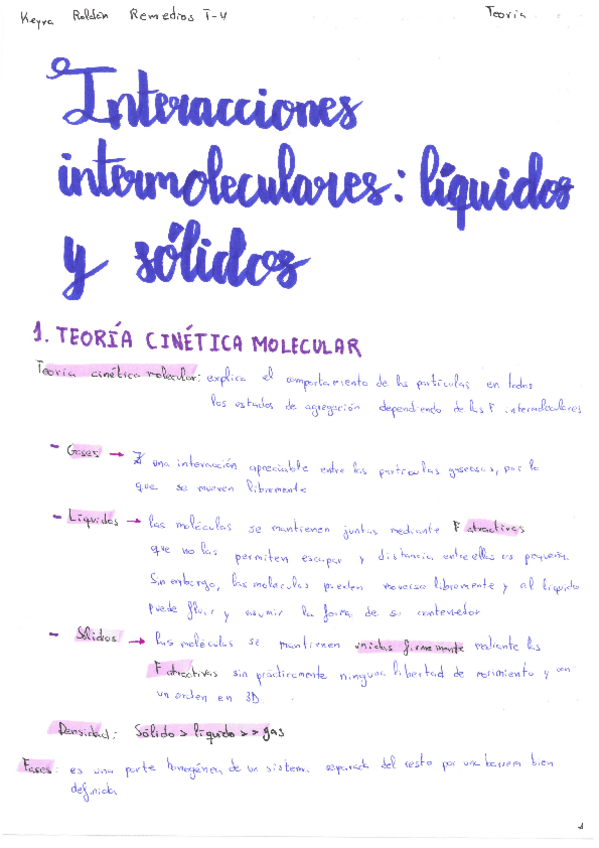 Keyra Roldán Remedios T-4 Teoría
Interacciones
intermoleculares: líquidos
y sólidos
1. TEORÍA CINÉTICA MOLECULAR
Teoría cinética molecular: explica el comportamiento de las partículas en todos
los estados de agregación dependiendo de las F intermoleculares
- Gases → ∄ una interacción apreciable entre las partículas gaseosas, por lo
que se mueven libremente
- Líquidos → las moléculas se mantienen juntas mediante F atractivas
que no las permiten escapar y distancia entre ellas es pequeña.
Sin embargo, las moléculas pueden moverse libremente y al líquido
puede fluir y asumir la forma de su contenedor
- Sólidos → las moléculas se mantienen unidas firmemente mediante las
F atractivas sin prácticamente ninguna libertad de movimiento y con
un orden en 3D.
Densidad: Sólido > líquido >> gas
Fases: es una parte homogénea de un sistema separada del resto por una barrera bien
definida
1